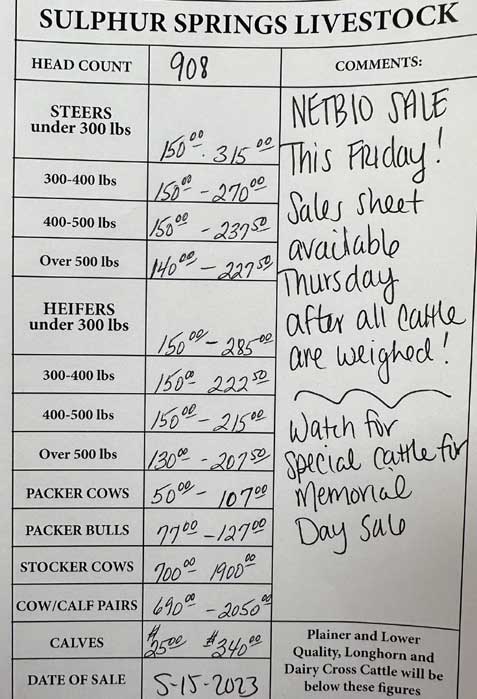 SULPHUR SPRINGS LIVESTOCK
HEAD COUNT 908 COMMENTS:
STEERS
under 300 lbs 150.00 - 315.00
300-400 lbs 150.00 - 270.00
400-500 lbs 150.00 - 237.50
Over 500 lbs 140.00 - 227.50
HEIFERS
under 300 lbs 150.00 - 285.00
300-400 lbs 150.00 222.50
400-500 lbs 150.00 - 215.00
Over 500 lbs 130.00 - 207.50
PACKER COWS 50.00 - 107.00
PACKER BULLS 77.00 - 127.00
STOCKER COWS 700.00 1900.00
COW/CALF PAIRS 690.00 - 2050.00
CALVES $25.00 $340.00
DATE OF SALE 5-15-2023
NETBIO SALE
This Friday!
Sales sheet
available
Thursday
after all cattle
are weighed!
Watch for
Special Cattle for
Memorial
Day Sale
Plainer and Lower
Quality, Longhorn and
Dairy Cross Cattle will be
below these figures